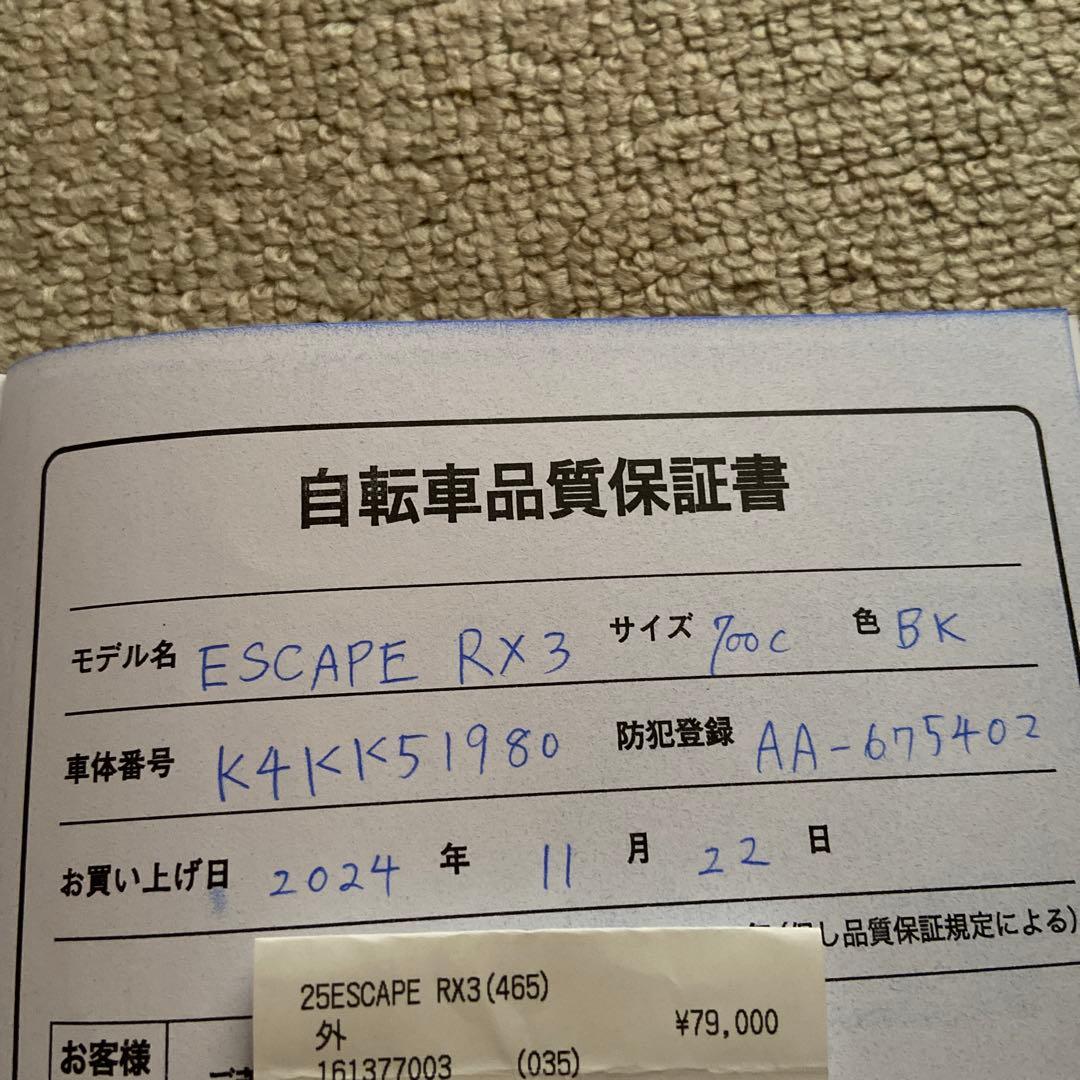 自転車品質保証書
モデル名 ESCAPE RX3 サイズ 700c 色 BK
車体番号 K4KK51980 防犯登録 AA-675402
お買い上げ日 2024 年 11 月 22 日
し品質保証規定による)
25ESCAPE RX3(465)
外 ¥79,000
161377003 (035)
お客様